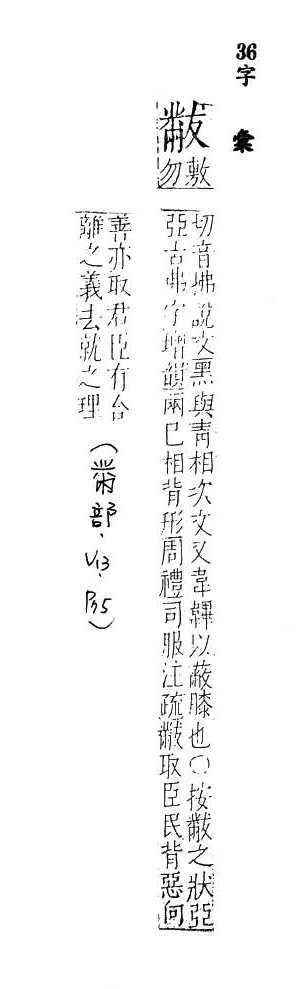 36
字 彙
黻
敷勿
切音拂說文黑與青相次文又韋韠以蔽膝也○按黻之狀亞
亞古弗字增韻兩巳相背形周禮司服注疏黻取臣民背惡向
善亦取君臣有合
離之義去就之理
(黹部、V13、P35)